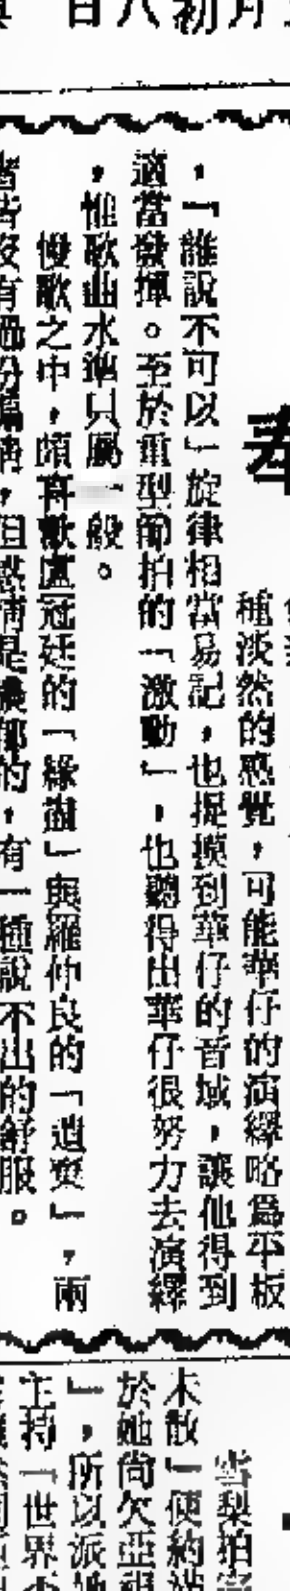 月初八日
奉
種淡然的感覺，可能華仔的演繹略爲平板
，「誰說不可以」旋律相當易記，也捉摸到華仔的音域，讓他得到
適當發揮。至於重型節拍的「激動」，也聽得出華仔很努力去演繹
，惟歌曲水準只屬一般。
慢歌之中，頗喜歡盧冠廷的「綠樹」與羅仲良的「遺爽」，兩
者皆沒有過份煽情，但感情是濃郁的，有一種說不出的舒服。
雪梨拍
未散」便約
於她尚欠亞
」，所以派她
主持「世界